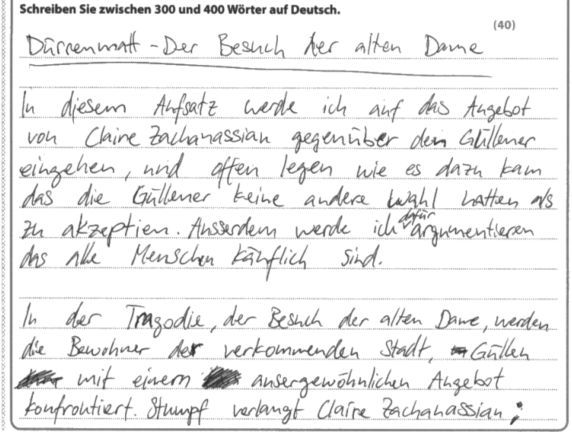 Schreiben Sie zwischen 300 und 400 Wörter auf Deutsch.
(40)
Dürrenmatt - Der Besuch der alten Dame
In diesem Aufsatz werde ich auf das Angebot
von Claire Zachanassian gegenüber dem Güllener
eingehen, und offen legen wie es dazu kam
das die Güllener keine andere Wahl hatten als
zu akzeptien. Ausserdem werde ich dafür argumentieren
das Alle Menschen käuflich sind.
In der Tragodie, der Besuch der alten Dame, werden
die Bewohner der verkommenden Stadt, Güllen
mit einem ausergewöhnlichen Angebot
konfrontiert. Stumpf verlangt Claire Zachanassian;